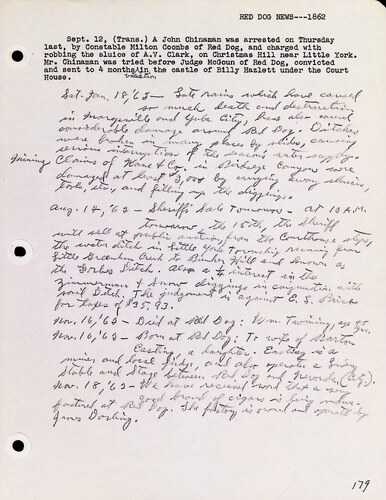 RED DOG NEWS---1862
Sept. 12, (Trans.) A John Chinaman was arrested on Thursday
last, by Constable Milton Coombs of Red Dog, and charged with
robbing the sluice of A.V. Clark, on Christmas Hill near Little York.
Mr. Chinaman was tried before Judge McGoun of Red Dog, convicted
and sent to 4 months in the castle of Billy Hazlett under the Court
vacation
House.
Sat. Jan. 18, '62 - Late rains which have caused
so much death and destruction
in Marysville and Yuba City, have also caused
considerable damage around Red Dog. Ditches
were broken in many places by slides, causing
serious interruption of the season's water supply.
Mining Claims of & Co. in Birdseye Canyon were
damaged at least $ ,000 by carrying away sluices,
tools, etc, and filling up the diggings.
Aug. 14, '62 - Sheriff's Sale Tomorrow - at 10 A.M.
tomorrow the 15th, the Sheriff
will sell at public auction, from the Courthouse steps,
the water ditch in Little York Township running from
Little Greenhorn Creek to Bunker Hill and known as
the Forbes Ditch. Also a ½ interest in the
Zimmerman & Snow diggings in conjunction with
said Ditch. The judgment is against C. S. Price
for taxes of $35.93.
Nov. 16, '62 - Died at Red Dog: Wm. Twining, age 45 yrs.
Nov. 16, '62 - Born at Red Dog: To wife of Barton
Easting, a daughter. Easting is a
miner and local Judge, and also operates a Livery
Stable and Stage between Red Dog and Nevada (City).
Nov. 18, '62 - We have received word that a new
good brand of cigars is being manu-
factured at Red Dog. The factory is owned and operated by
James Dowling.
179